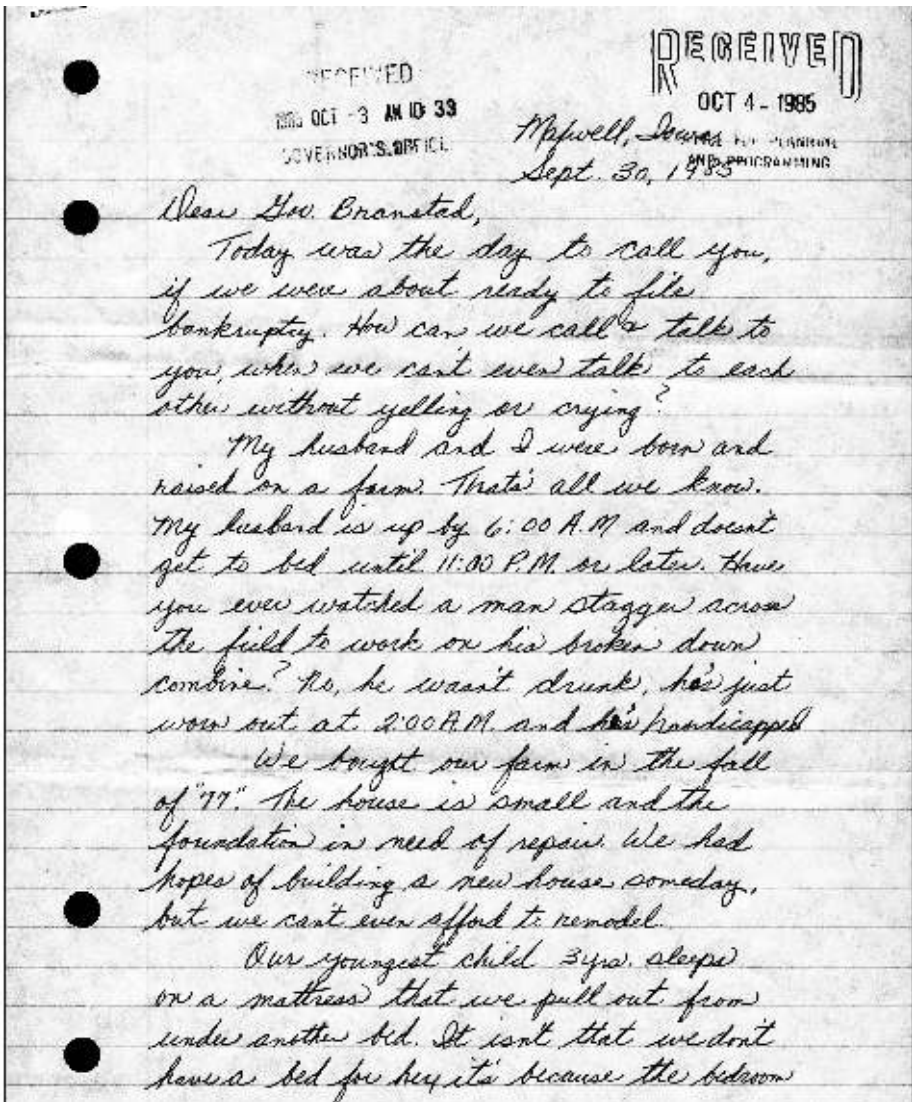 RECEIVED
OCT 4 - 1985
OFFICE FOR PLANNING
AND PROGRAMMING
RECEIVED
1985 OCT -3 AM 10: 33
GOVERNOR'S OFFICE
Maxwell, Iowa
Sept. 30, 1985
Dear Gov. Branstad,
Today was the day to call you,
if we were about ready to file
bankruptcy. How can we call & talk to
you, when we can't even talk to each
other without yelling or crying?
My husband and I were born and
raised on a farm. That's all we know.
My husband is up by 6:00 A.M and doesn't
get to bed until 11:00 P.M. or later. Have
you ever watched a man stagger across
the field to work on his broken down
combine? No, he wasn't drunk, he's just
worn out at 2:00 A.M. and he's handicapped
We bought our farm in the fall
of "77". The house is small and the
foundation in need of repair. We had
hopes of building a new house someday,
but we can't even afford to remodel.
Our youngest child 3yrs. sleeps
on a mattress that we pull out from
under another bed. It isn't that we don't
have a bed for her, it's because the bedroom